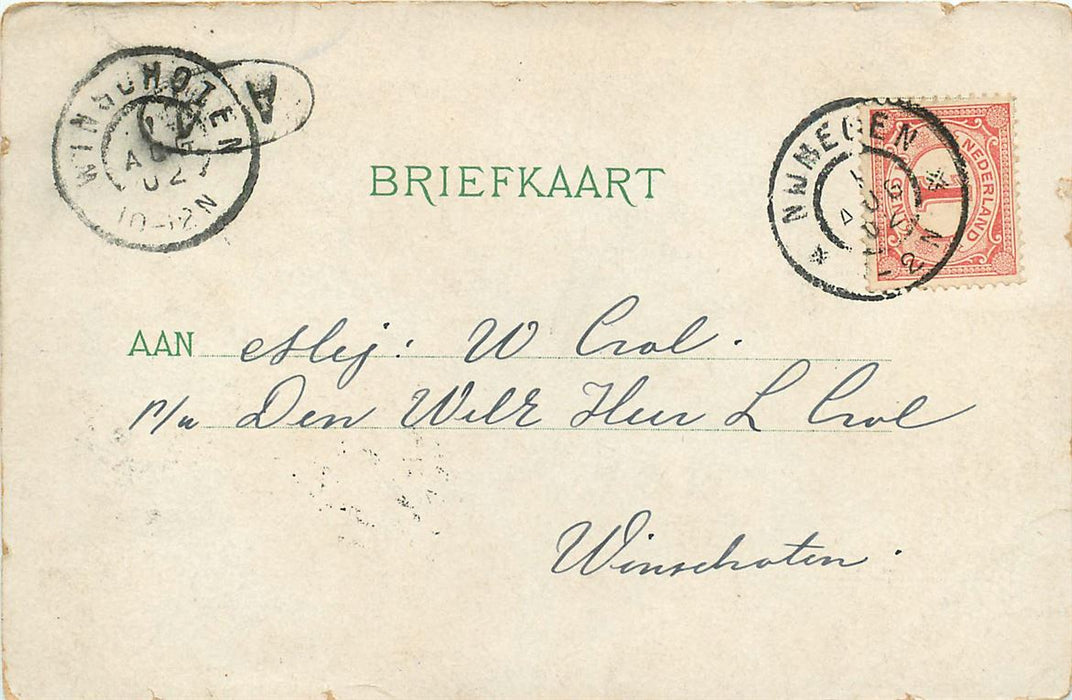 WINSCHOTEN
AUG
02
10-12N
A
BRIEFKAART
NIJMEGEN
AUG
02
N
NEDERLAND
1
CENT
AAN Mej: W Crol.
p/a Den WelE Heer L Crol
Winschoten.